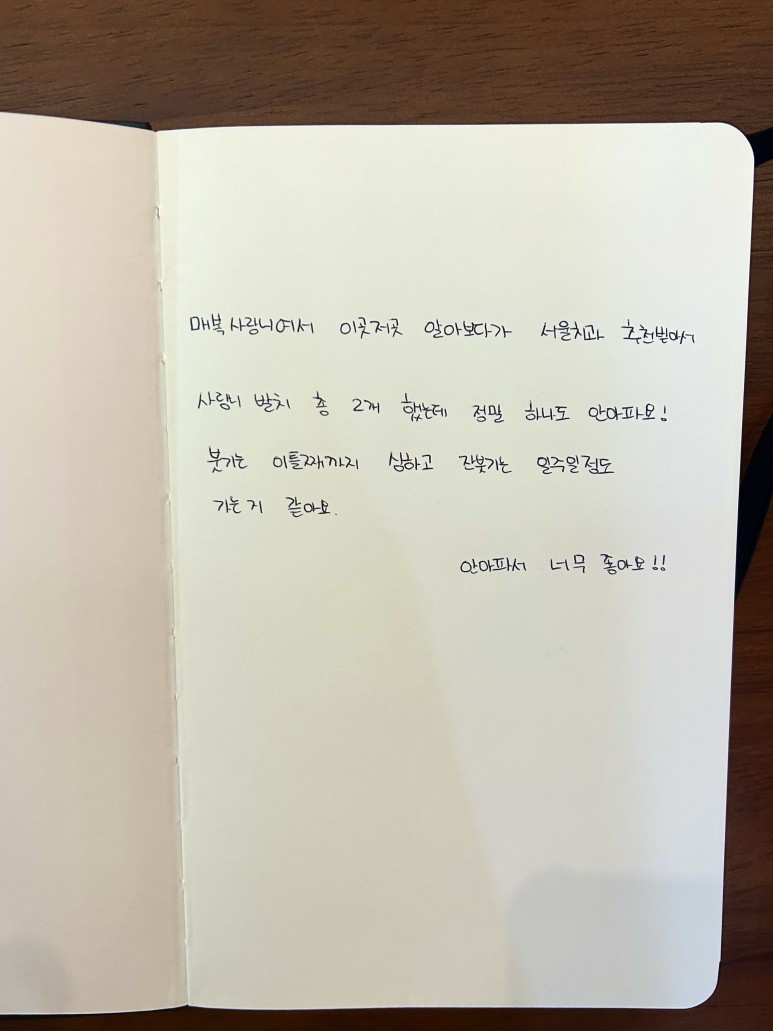 매복사랑니여서 이곳저곳 알아보다가 서울치과 추천받아서
사랑니 발치 총 2개 했는데 정말 하나도 안아파요!
붓기는 이틀째까지 심하고 잔붓기는 일주일정도
가는거 같아요.
안아파서 너무 좋아요!!